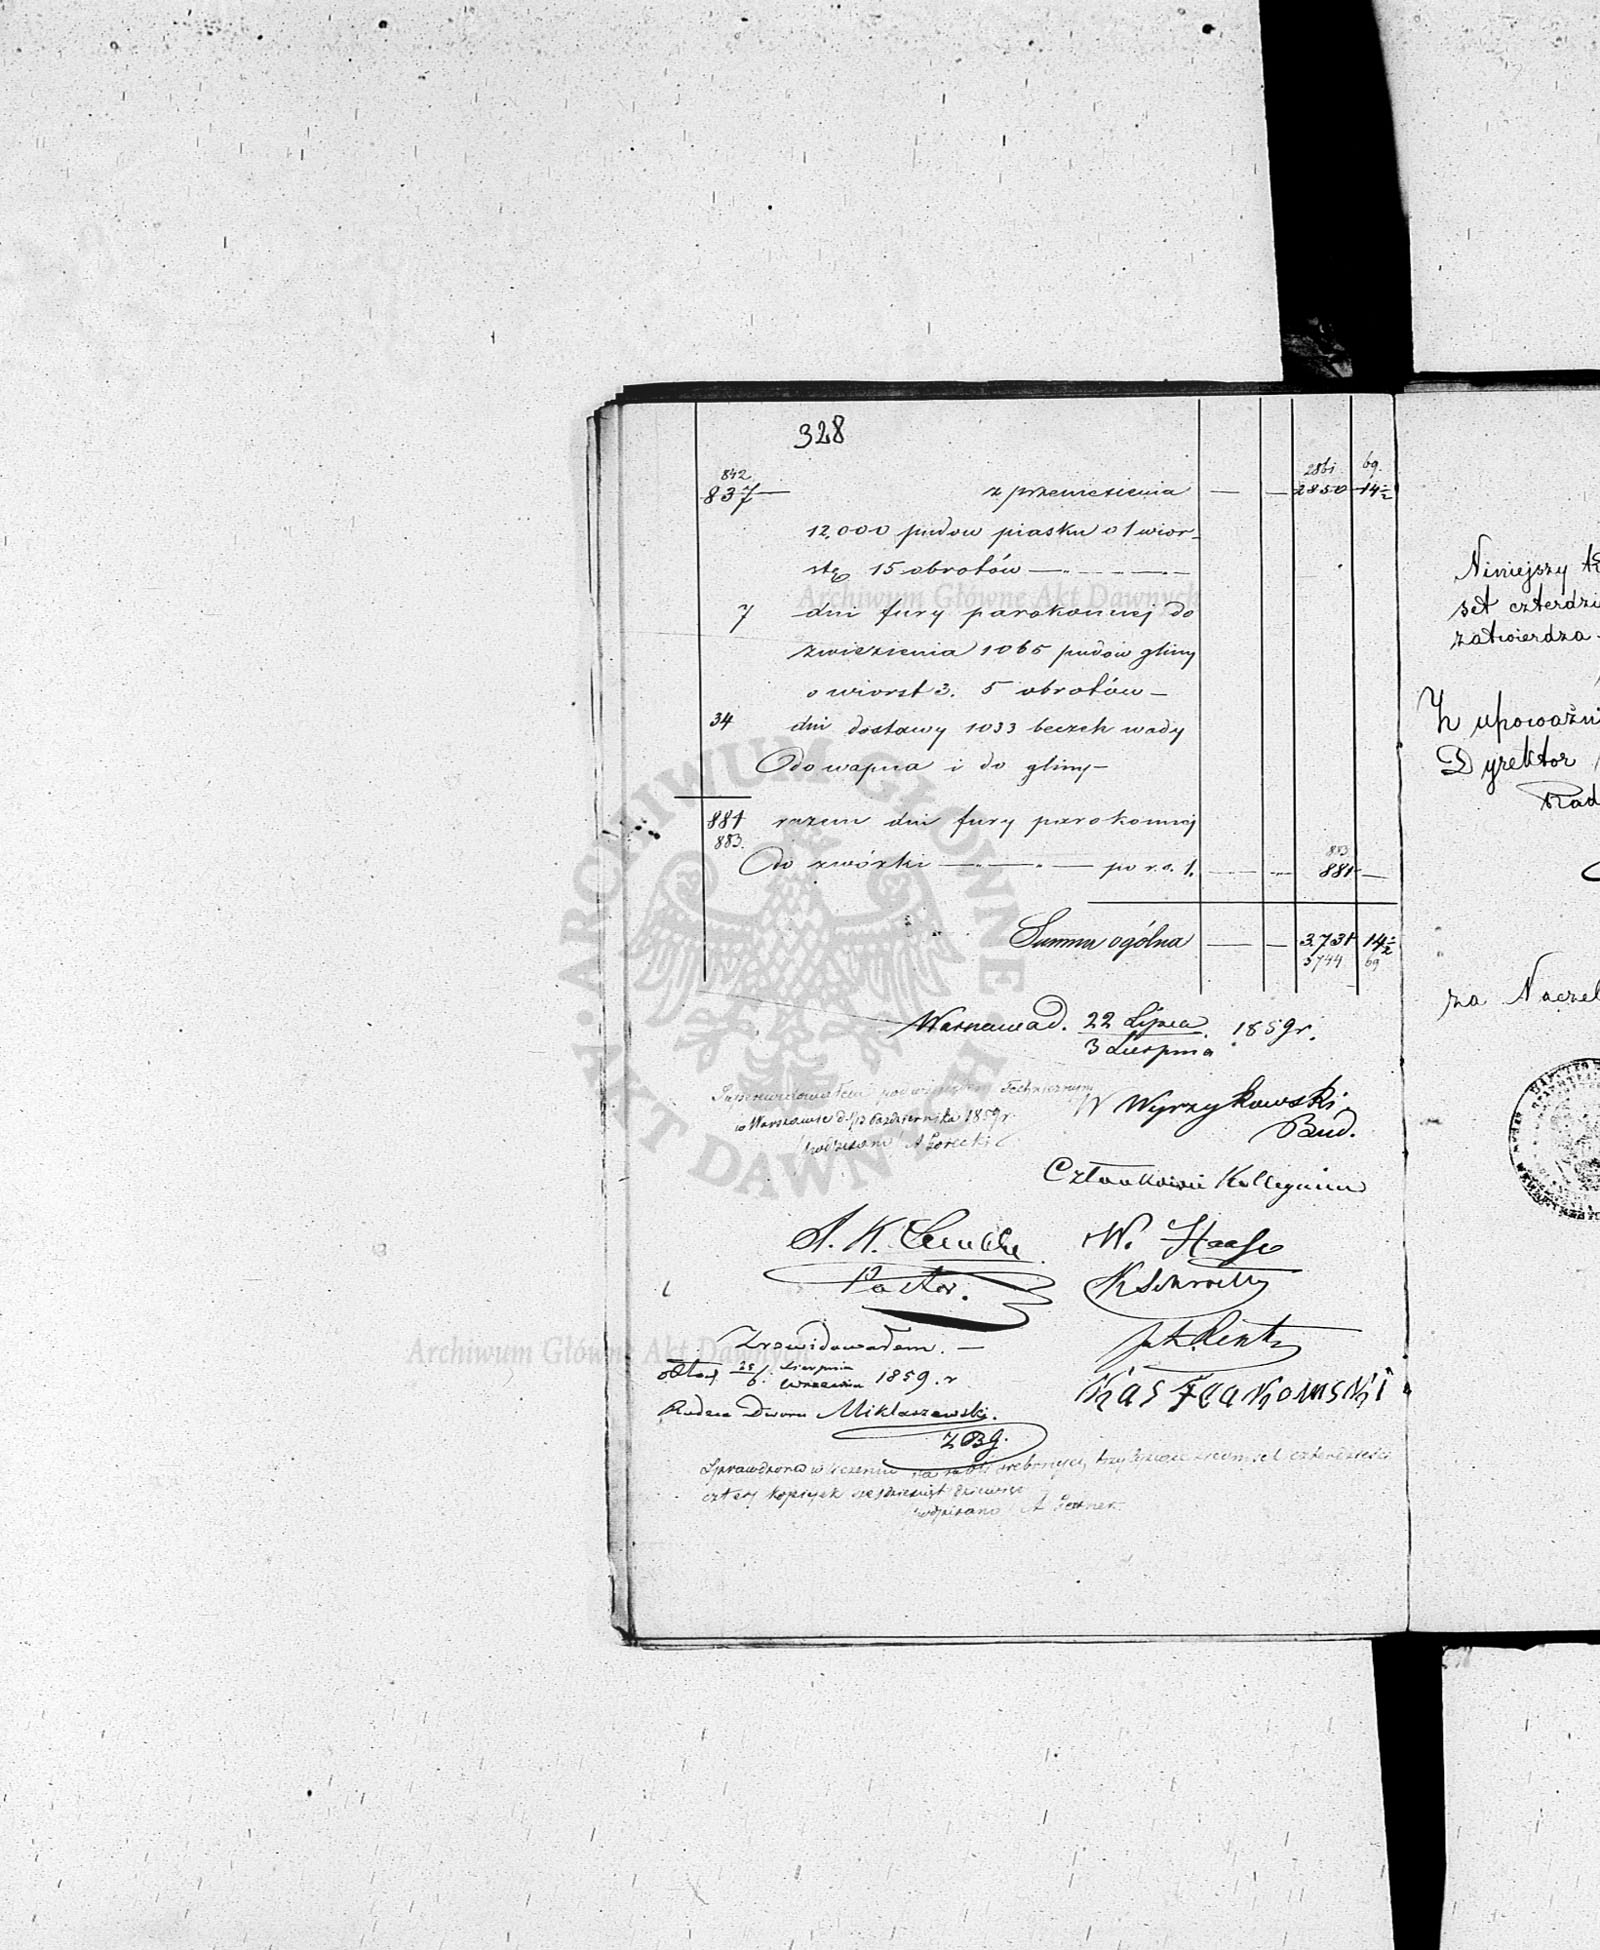 328
842
2861 69
837 — z przeniesienia — — 2850 14½
12,000 pudów piasku o 1 wior-
stę 15 obrotów —
7 dni fury parokonnej do
zwiezienia 1065 pudów gliny
o wiorst 3. 5 obrotów —
34 dni dostawy 1033 beczek wody
do wapna i do gliny —
881 razem dni fury parokonnej
883.
883
do zwózki — po r.s. 1. — — 881 —
Summa ogólna — — 3.731 14½
3744 69
Warszawa d. 22 Lipca / 3 Sierpnia 1859 r.
Superrewidowałem pod względem Technicznym
w Warszawie d. Października 1859 r
podpisano A Gorecki
W Wyrzykowski
Bud.
Członkowie Kollegium
W. Haase
Pastor.
Zrewidowałem. —
25/6 Sierpnia / Września 1859 . r
Radca Dworu Miklaszewski.
Z B G.
Sprawdzono w liczeniu na rubli srebrnych, trzy tysiące siedmset czterdzieści
cztery kopiejek sześdziesiąt dziewięć
podpisano A
Niniejszy
set czterdzie
zatwierdza
Z upoważni
Dyrektor
Rad
za Naczel
Archiwum Główne Akt Dawnych
Archiwum Główne Akt Dawnych
ARCHIWUM GŁÓWNE AKT DAWNYCH